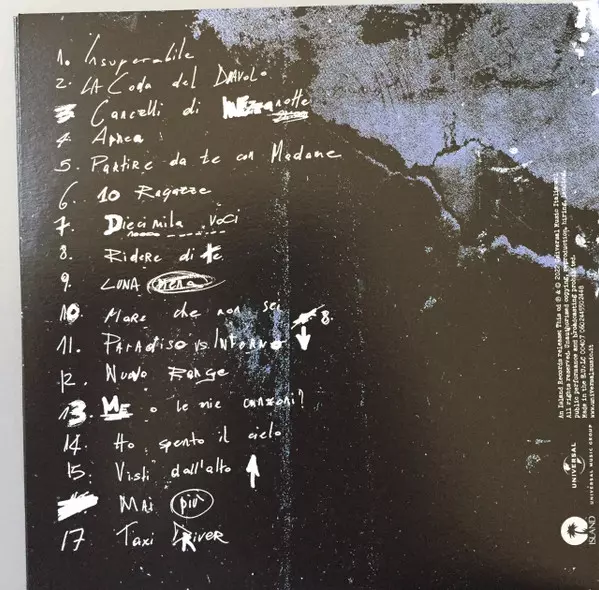 1. Insuperabile
2. LA Coda del DIAVOLO
3 Cancelli di MEZZANOTTE
4. Apnea
5. Partire da te con Madame
6. 10 Ragazze
7. Diecimila voci
8. Ridere di te
9. LUNA piena
10 Mare che non sei
8.
11. Paradiso vs. Inferno
12. Nuovo Range
13. ME o le mie canzoni?
14. Ho spento il cielo
15. Visti dall'alto
MAI più
17 Taxi DRIVER
An Island Records release; This cd ℗ & © 2022 Universal Music Italia srl
All rights reserved. Unauthorised copying, reproduction, hiring, lending,
public performance and broadcasting prohibited.
Made in the E.U. LC 00407 0602445552448
www.universalmusic.it
UNIVERSAL
UNIVERSAL MUSIC GROUP
ISLAND